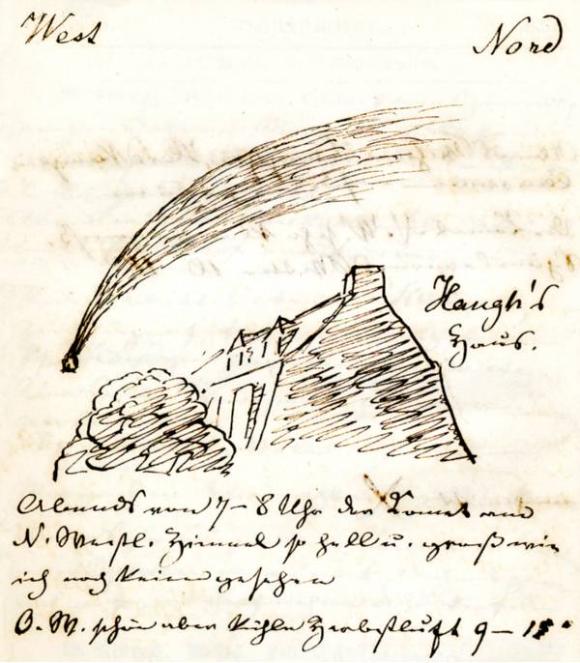 West
Nord
Haugh's
Haus.
Abends von 7–8 Uhr der Komet am
N. Westl. Himmel so hell u. groß wie
ich noch keinen gesehen
O. W. schön aber kühle Herbstluft 9–